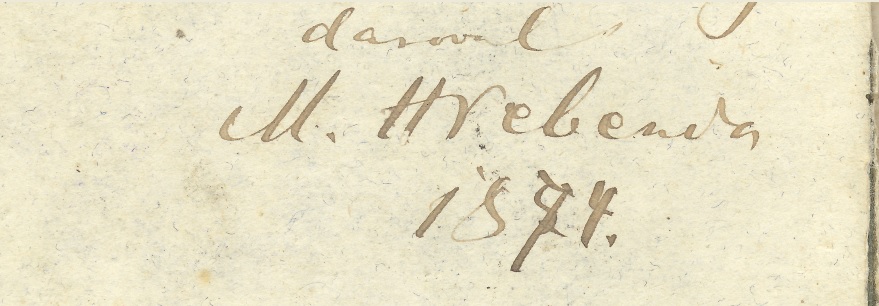 daroval
M. Hrebenda
1874.